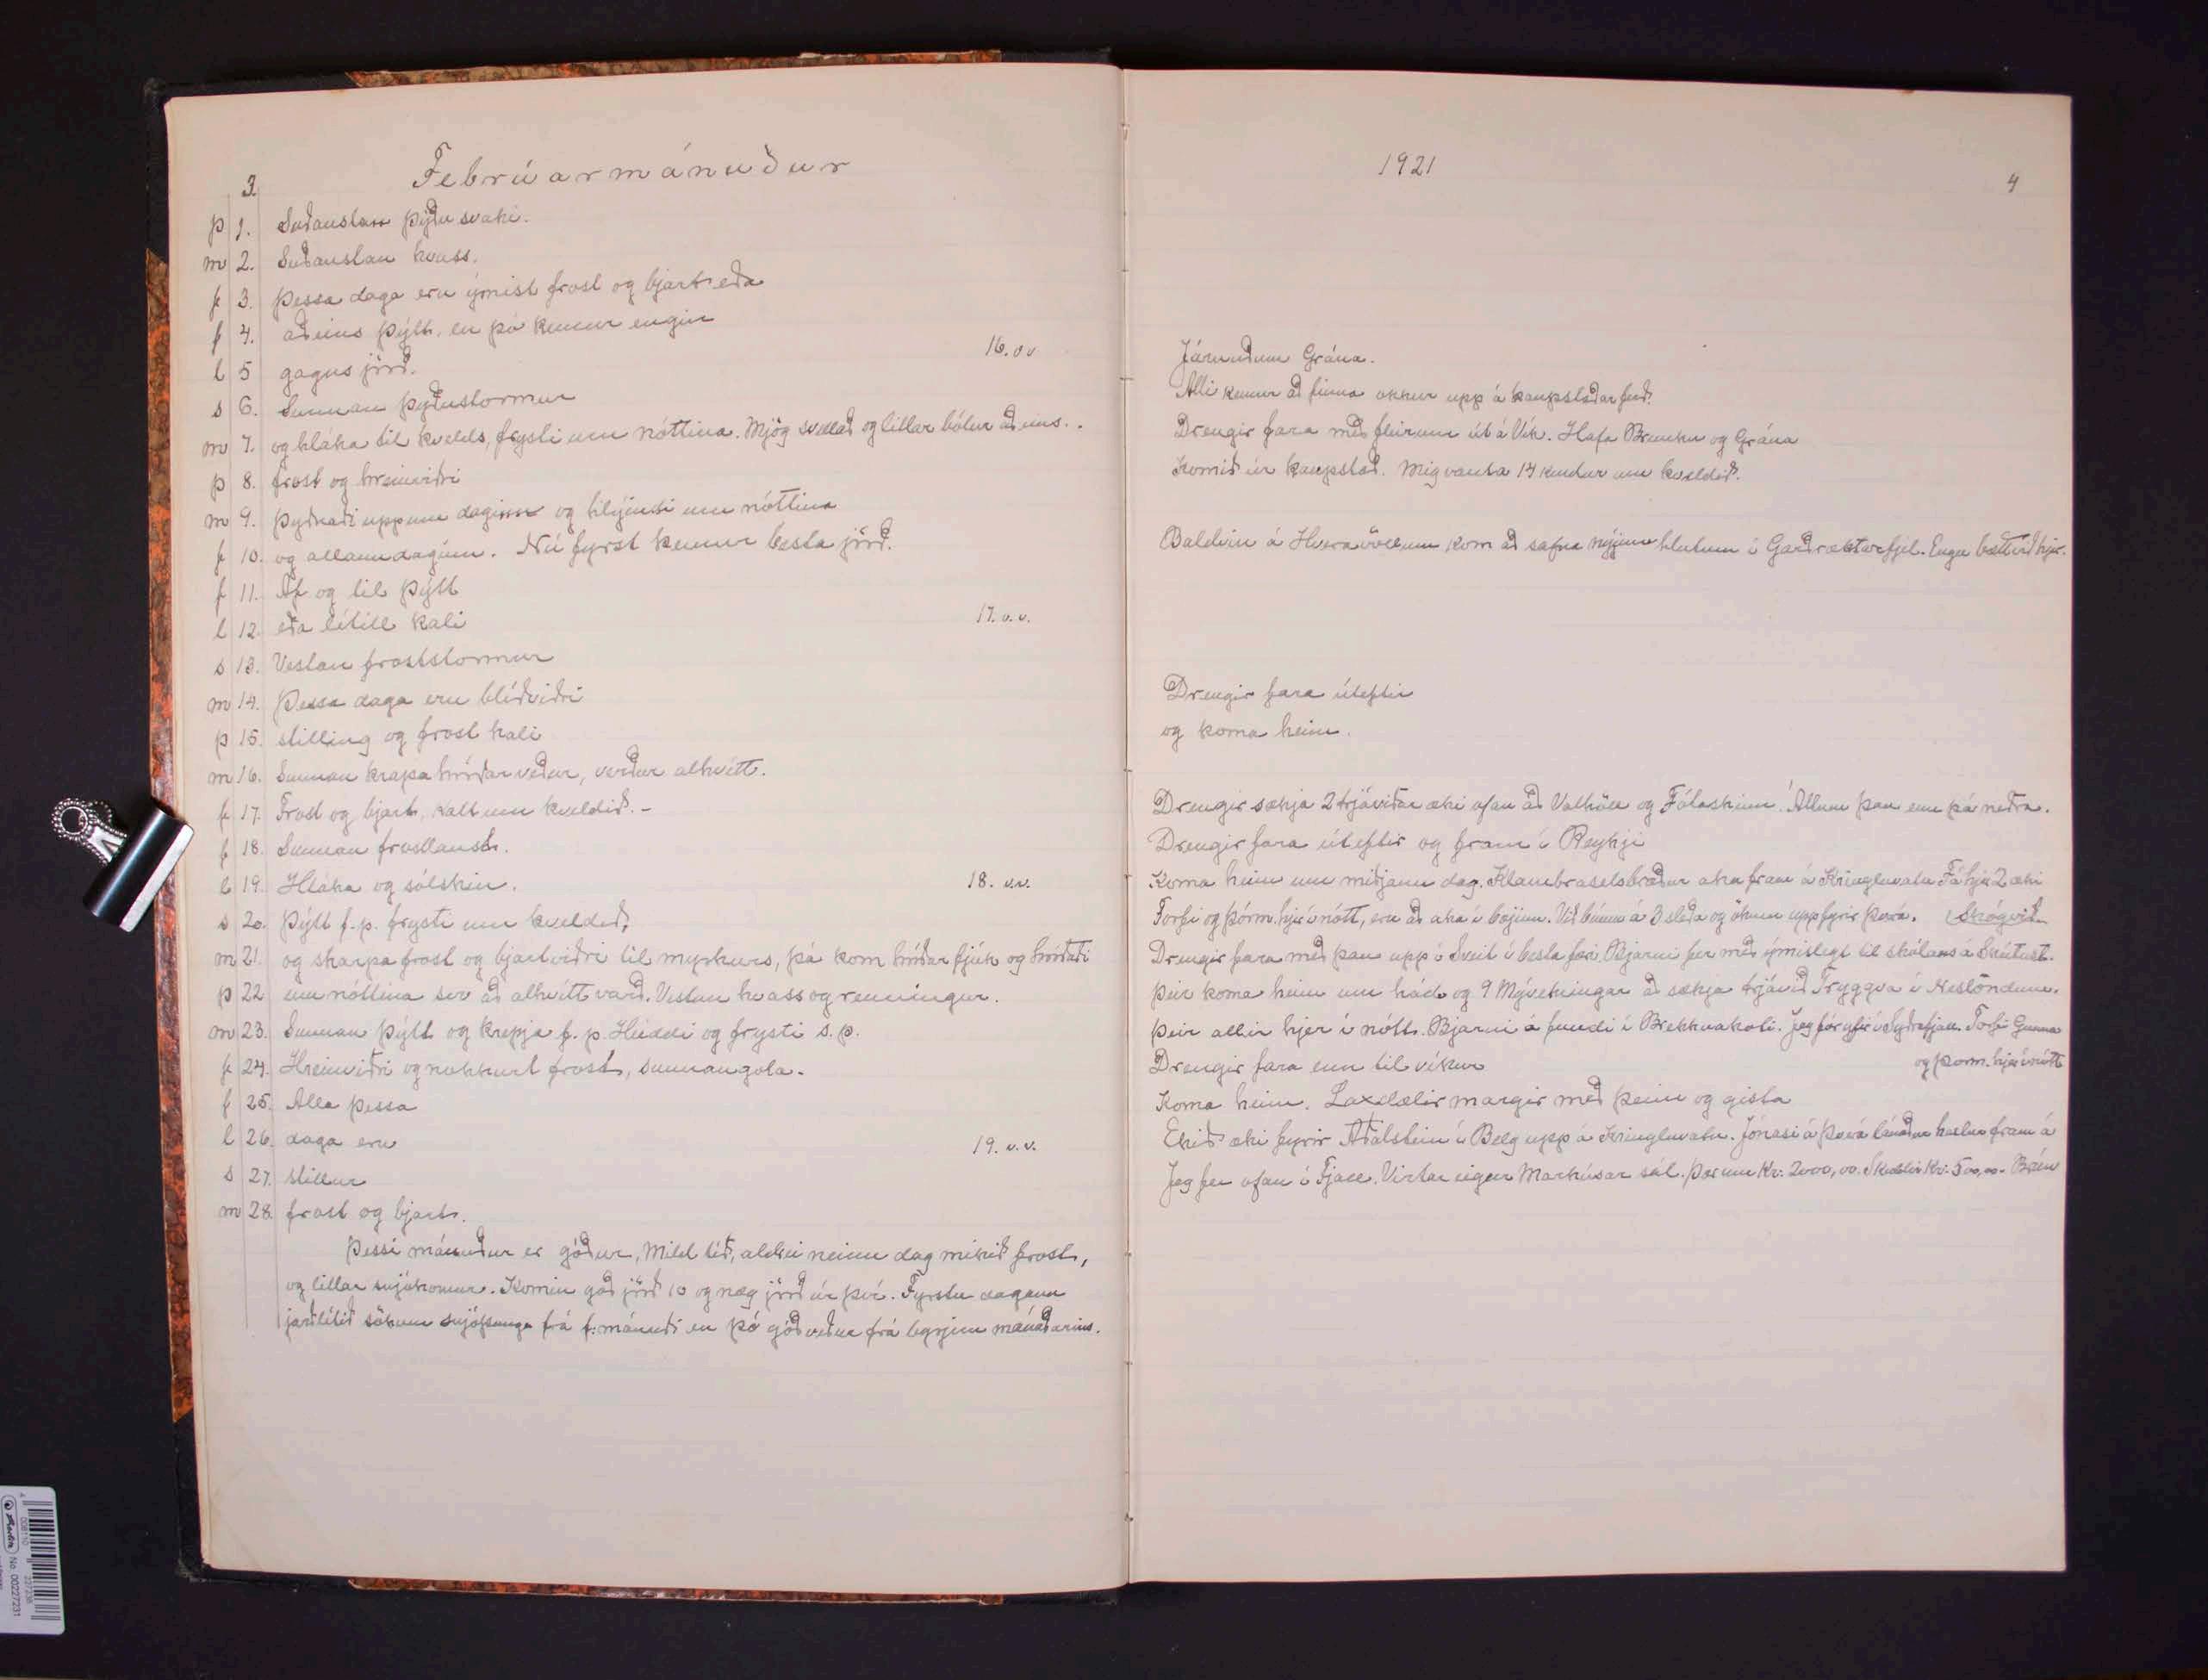 3. Febrúarmánuður
þ 1. Suðaustan þýðu svaki.
m 2. Suðaustan hvass.
f 3. Þessa daga eru ýmist frost og bjart eða
f 4. aðeins þýtt, en þó kemur engin
l 5 gagns jörð. 16. vv
s 6. Sunnan þýðustormur
m 7. og hláka til kvelds, frysti um nóttina. Mjög svellað og litlar bólur aðeins.
þ 8. frost og hreinviðri
m 9. Þyðnaði uppum daginn og hlýindi um nóttina
f 10. og allann daginn. Nú fyrst kemur besta jörð.
f 11. Af og til þýtt
l 12. eða lítill kali 17. v.v.
s 13. Vestan froststormur
m 14. Þessa daga eru blíðviðri
þ 15. stilling og frost kali
m 16. Sunnan krapa hríðar veður, verður alhvítt.
f 17. Frost og bjart, kalt um kveldið. -
f 18. Sunnan frostlaust.
l 19. Hláka og sólskin. 18. v.v.
s 20. Þýtt f. p. frysti um kveldið,
m 21. og skarpa frost og bjartviðri til myrkurs, þá kom hríðar fjúk og hríðaði
þ 22 um nóttina svo að alhvítt varð. Vestan hvass og renningur.
m 23. Sunnan þýtt og krepja f. p. Húddi og frysti s. p.
f 24. Hreinviðri og nokkurt frost, sunnangola.
f 25. Alla þessa
l 26. daga eru 19. v.v.
s 27. stillur
m 28. frost og bjart.
Þessi mánuður er góður, Mild tíð, aldrei neinn dag mikið frost,
og litlar snjókomur. Komin góð jörð 10 og næg jörð úr því. Fyrstu dagana
jarðlítið sökum snjóþunga frá f. mánuði en þó góð veður frá byrjun mánaðarins.
1921
4
Járnuðum Grána.
Alli kemur að finna okkur upp á kaupstaðarferð.
Drengir fara með fleirum út á Vík. Hafa Brunku og Grána
Komið úr kaupstað. Mig vanta 14 kindur um kveldið.
Baldvin á Hveravöllum kom að safna nýjum hlutum í Garðræktarfjel. Engu bætt við hjer.
Drengir fara úteftir
og koma heim.
Drengir sækja 2 trjáviðar æki ofan að Valhöll og Fótaskinn. Allum þau enn þá neðra.
Drengir fara úteftir og fram í Reyki
Koma heim um miðjann dag. Klambraselsbræður aka fram á Kringluvatn Fá hjer 2 æki
Torfi og Þorm. hjer í nótt, eru að aka í bæjinn. Við búum á 3 sleða og ökum upp fyrir Þverá. Skógvið
Drengir fara með þau upp í Sveit í besta færi. Bjarni fer með ýmislegt til skólans á Skútust.
Þeir koma heim um hád. og 9 Mývetningar að sækja trjávið Tryggva í Neslöndum.
Þeir allir hjer í nótt. Bjarni á fundi í Brekknakoti. Jeg fór yfir í Syðrafjall. Torfi Gunna
Drengir fara enn til víkur og Þorm. hjer í nótt
Koma heim. Laxdælir margir með þeim og gista
Ekið æki fyrir Aðalstein í Belg upp á Kringluvatn. Jónasi á Þverá láðður hestur fram á
Jeg fer ofan í Fjall. Virtar eigur Markúsar sál. Þær um Kr: 2000,00. Skuldir Kr: 500,00. Brún